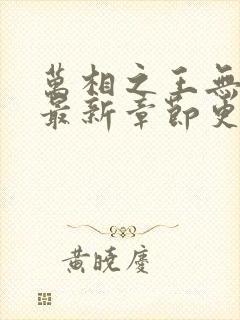 萬相之王無
最新章節更
黃曉慶